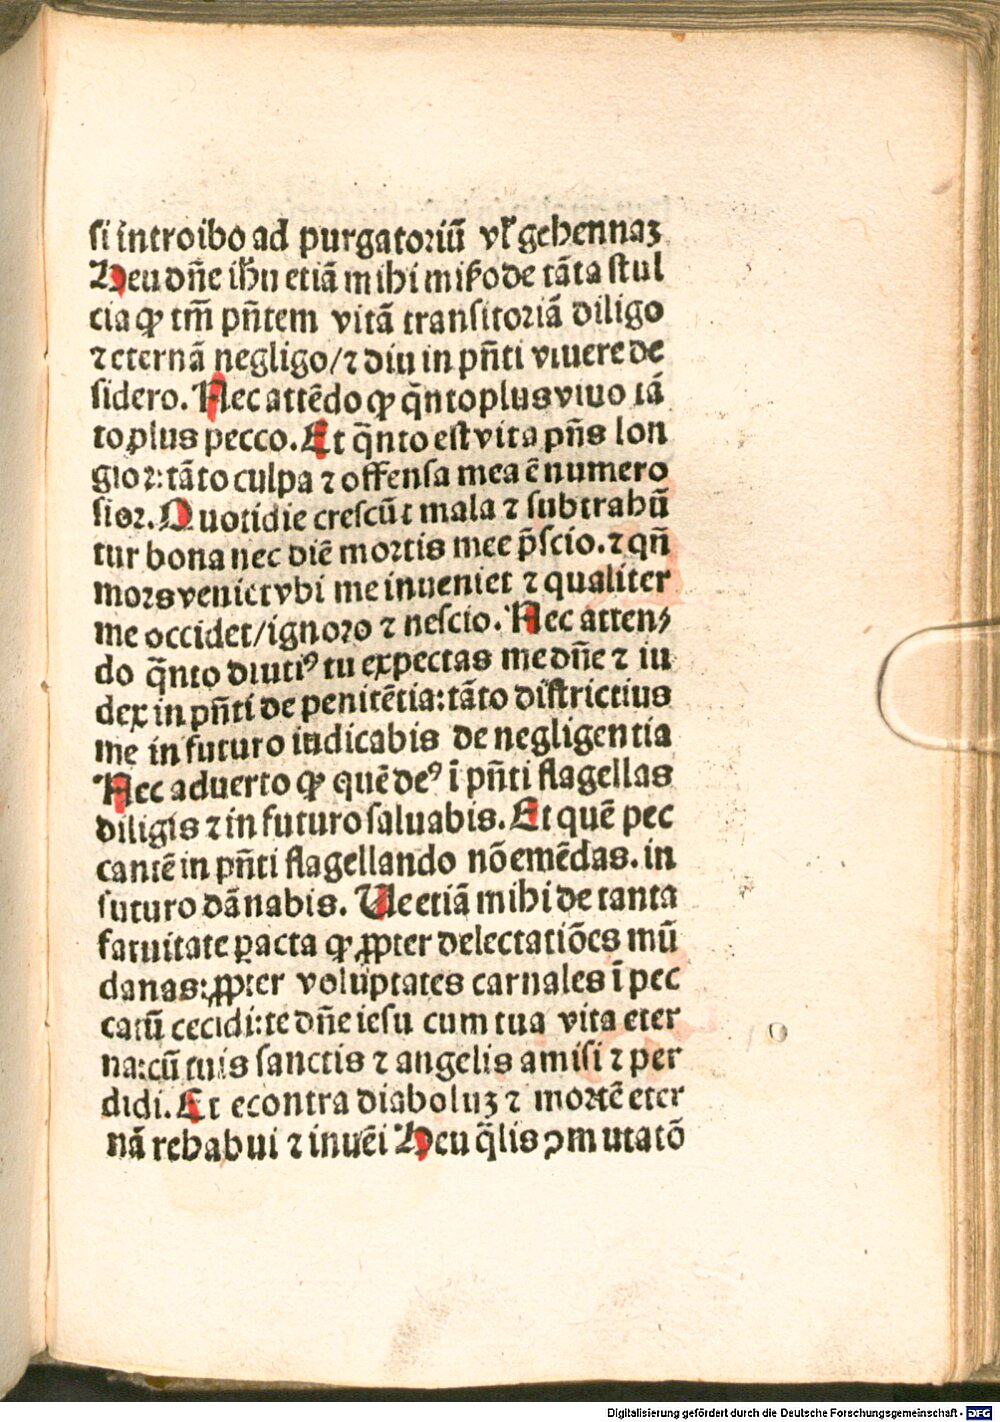 si introibo ad purgatoriū vl̕ gehennaꝫ
Heu dn̄e ih̄u etiā mihi miẜo de tāta stul
cia qꝙ tm̄ pn̄tem vitā transitoriā diligo
⁊ eternā negligo/⁊ diu in pn̄ti viuere de
sidero. Nec attēdo ꝙ q̄nto plus viuo tā
to plus pecco. Et q̄nto est vita pn̄s lon
gior: tāto culpa ⁊ offensa mea ē numero
sior. Quotidie crescūt mala ⁊ subtrahū
tur bona nec diē mortis mee p̄scio. ⁊ qn̄
mors veniet vbi me inueniet ⁊ qualiter
me occidet/ignoro ⁊ nescio. Nec atten⸗
do q̄nto diutiꝰ tu expectas me dn̄e ⁊ iu
dex in pn̄ti de penitētia: tāto districtius
me in futuro iudicabis de negligentia
Nec aduerto ꝙ quē deꝰ ī pn̄ti flagellas
diligis ⁊ in futuro saluabis. Et quē pec
cantē in pn̄ti flagellando nō emēdas. in
futuro dānabis. Ue etiā mihi de tanta
fatuitate ꝑacta ꝙ ꝓpter delectatiōes mū
danas: ꝓpter voluptates carnales ī pec
catū cecidi: te dn̄e iesu cum tua vita eter
na: cū tuis sanctis ⁊ angelis amisi ⁊ per
didi. Et econtra diaboluꝫ ⁊ mortē eter
nā rehabui ⁊ inuēi Heu q̄lis ↄmutatō
Digitalisierung gefördert durch die Deutsche Forschungsgemeinschaft - DFG